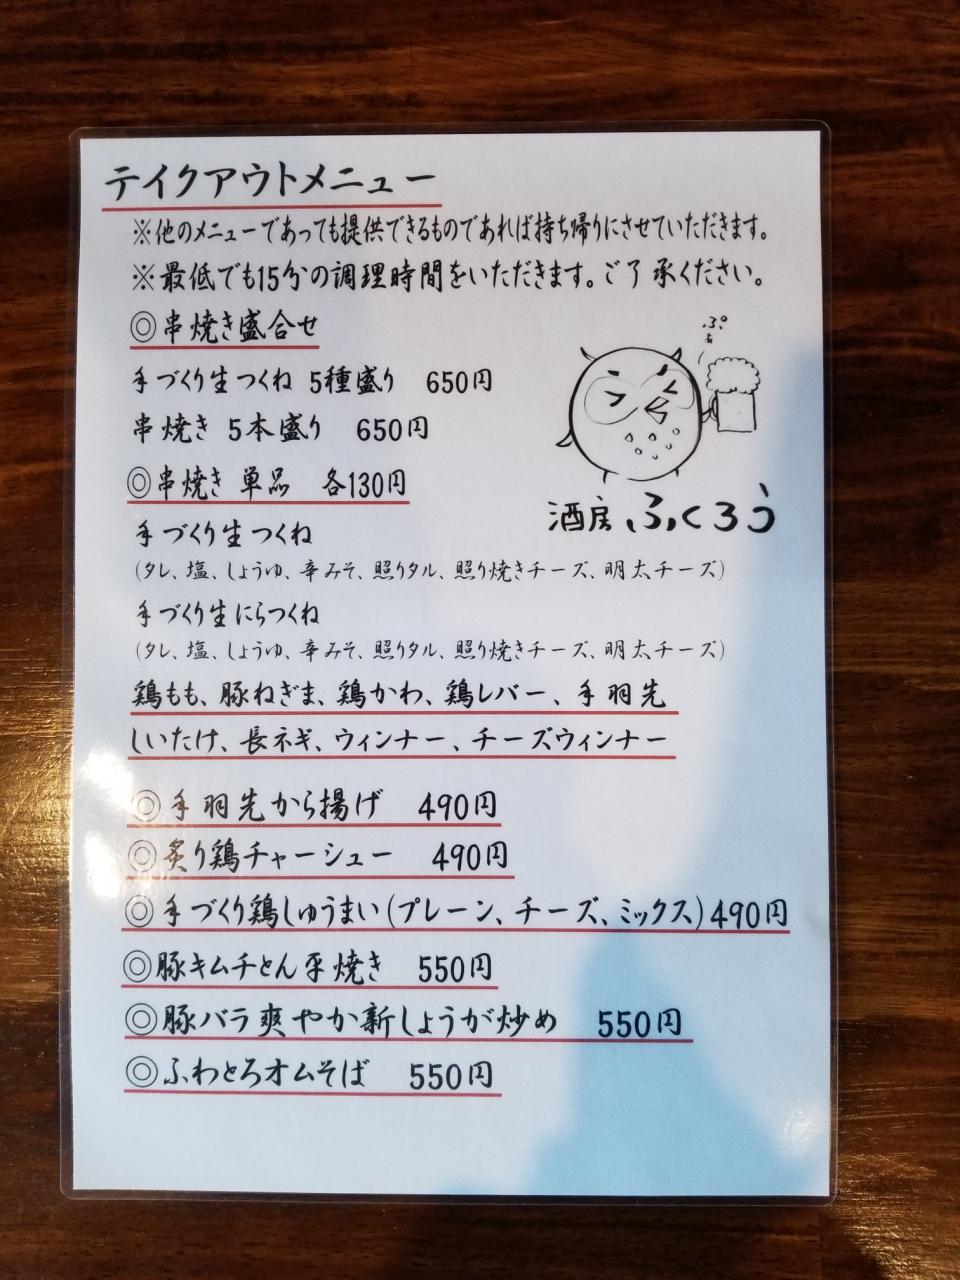 テイクアウトメニュー
※他のメニューであっても提供できるものであれば持ち帰りにさせていただきます。
※最低でも15分の調理時間をいただきます。ご了承ください。
◎串焼き盛合せ
ぷぁ
手づくり生つくね 5種盛り 650円
串焼き 5本盛り 650円
◎串焼き 単品 各130円
酒房 ふくろう
手づくり生つくね
(タレ、塩、しょうゆ、辛みそ、照りタル、照り焼きチーズ、明太チーズ)
手づくり生にらつくね
(タレ、塩、しょうゆ、辛みそ、照りタル、照り焼きチーズ、明太チーズ)
鶏もも、豚ねぎま、鶏かわ、鶏レバー、手羽先
しいたけ、長ネギ、ウィンナー、チーズウィンナー
◎手羽先から揚げ 490円
◎炙り鶏チャーシュー 490円
◎手づくり鶏しゅうまい(プレーン、チーズ、ミックス)490円
◎豚キムチとん平焼き 550円
◎豚バラ爽やか新しょうが炒め 550円
◎ふわとろオムそば 550円